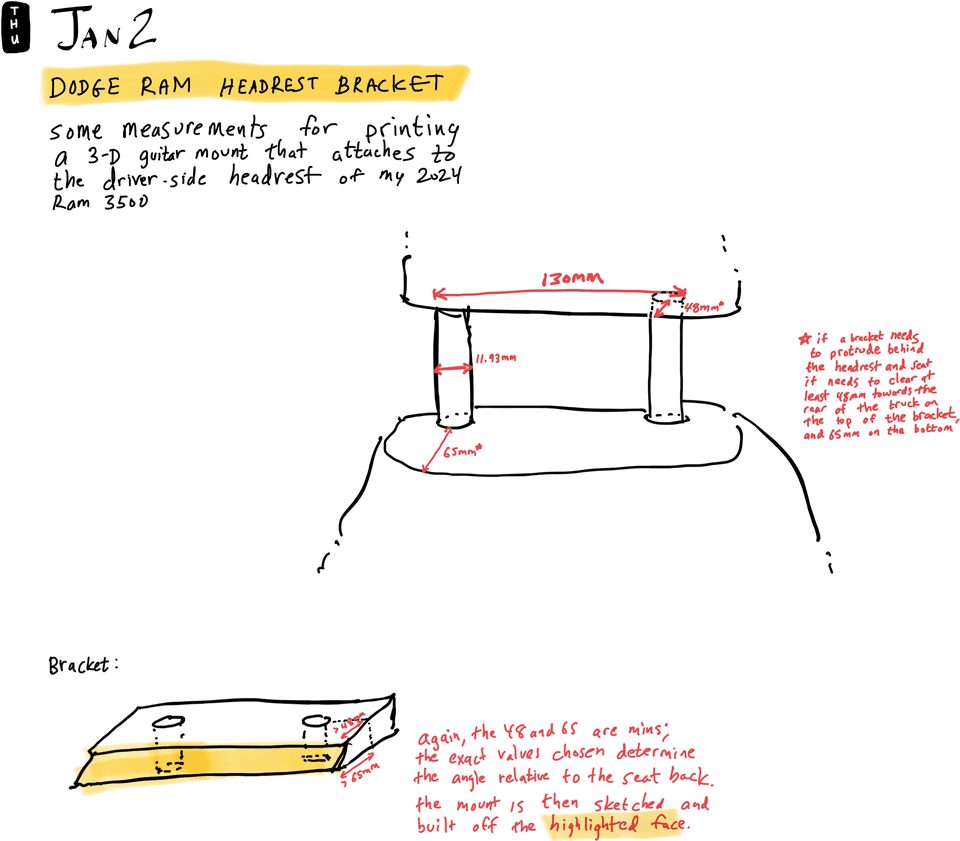 THU
JAN 2
DODGE RAM HEADREST BRACKET
some measurements for printing
a 3-D guitar mount that attaches to
the driver-side headrest of my 2024
Ram 3500
130mm
48mm*
11.93mm
65mm*
* if a bracket needs
to protrude behind
the headrest and seat
it needs to clear at
least 48mm towards the
rear of the truck on
the top of the bracket,
and 65mm on the bottom
Bracket:
>48mm
>65mm
again, the 48 and 65 are mins;
the exact values chosen determine
the angle relative to the seat back.
the mount is then sketched and
built off the highlighted face.